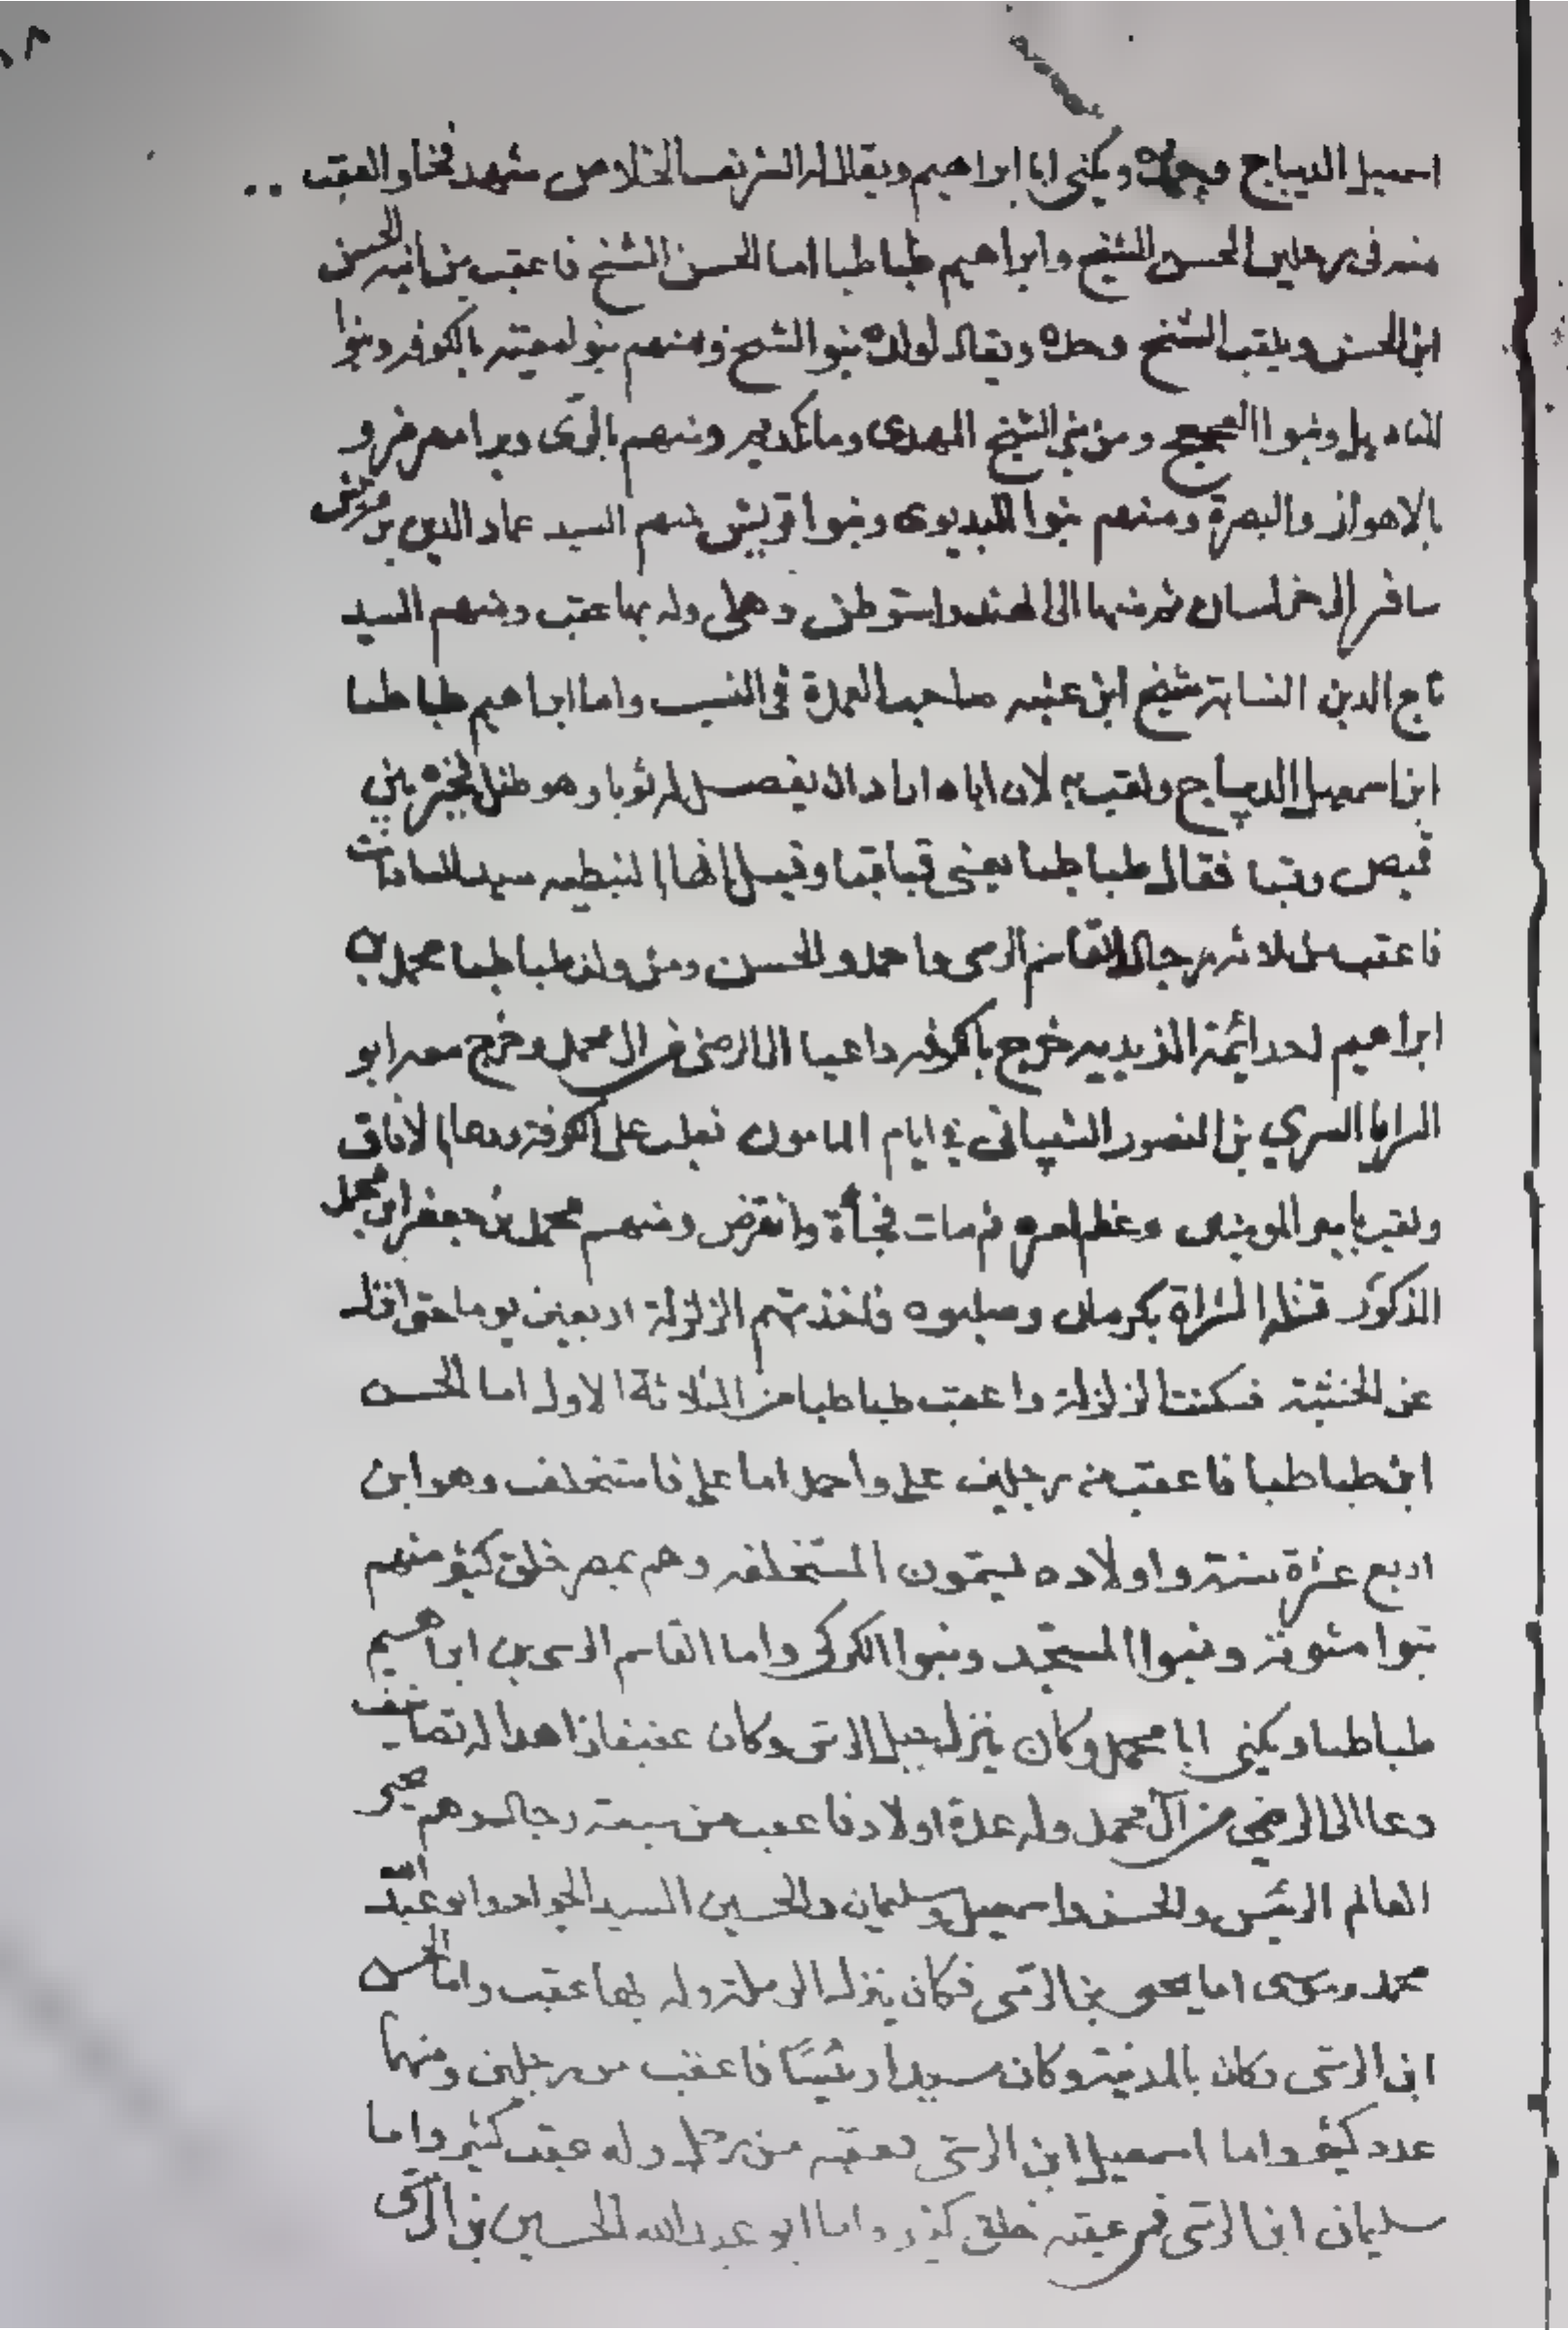 ١٨
اسمعيل الديباج وحده ويكنى ابا ابراهيم ويقال له الشريف الخلاص شهد فخا والعقب
منه فى رجلين الحسن الشيخ وابراهيم طباطبا اما الحسن الشيخ فاعقب من ابنه الحسن
ابن الحسن ويلقب الشيخ وحده ويقال لولده بنوا الشيخ ومنهم بنو لمعية بالكوفه وبنوا
ومن بني الشيخ المهدى ومنهم بالرى وبرامهرمز و
بالاهواز والبصرة ومنهم بنوا البديوى وبنوا قريش منهم السيد عماد الدين بن قريش
سافر الى خراسان ثم منها الى الهند واستوطن دهلى وله بها عقب ومنهم السيد
تاج الدين النسابة شيخ ابن عنبه صاحب العمدة فى النسب واما ابراهيم طباطبا
ابن اسمعيل الديباج ولقب به لان اباه اراد ان يفصل له ثوبا وهو طفل فخيره بين
قميص وقبا فقال طباطبا يعنى قباقبا وقيل انها بالنبطيه سيد السادات
فاعقب من ثلاثة رجال القاسم الرسى واحمد والحسن ومن ولد طباطبا محمد بن
ابراهيم احد ائمة الزيديه خرج بالكوفه داعيا الى الرضى من ال محمد وخرج معه ابو
السرايا السري بن المنصور الشيبانى في ايام المامون فغلب على الكوفة ودعا بالافاق
ولقب بامير المومنين وعظم امره ثم مات فجأة وانقرض ومنهم محمد بن جعفر ابن محمد
المذكور قتله الشراة بكرمان وصلبوه فاخذتهم الزلزلة اربعين يوما حتى انزل
عن الخشبة فسكنت الزلزلة واعقب طباطبا من الثلاثة الاول اما الحسن
ابن طباطبا فاعقب من رجلين على واحمد اما على فاستخلف وهو ابن
اربع عشرة سنة واولاده يسمون المستخلفه وهم بمصر خلق كثير منهم
بنوا وبنوا المسجد وبنوا الكركى واما القاسم الرسى بن ابراهيم
طباطبا ويكنى ابا محمد وكان ينزل جبل الرسى وكان عفيفا زاهدا له تصانيف
دعا الى الرضى من آل محمد وله عدة اولاد فاعقب من سبعة رجال وهم يحيى
العالم الرئيس والحسن واسمعيل وسليمان والحسين السيد الجواد وابو عبد الله
محمد وموسى اما يحيى بن الرسى فكان ينزل الرملة وله بها عقب واما الحسن
ابن الرسى فكان بالمدينة وكان سيدا رئيسًا فاعقب من رجلين ومنهما
عدد كثير واما اسمعيل ابن الرسى فعقبه من رجل وله عقب كثير واما
سليمان ابن الرسى فمن عقبه خلق كثير واما ابو عبدالله الحسين بن الرسى